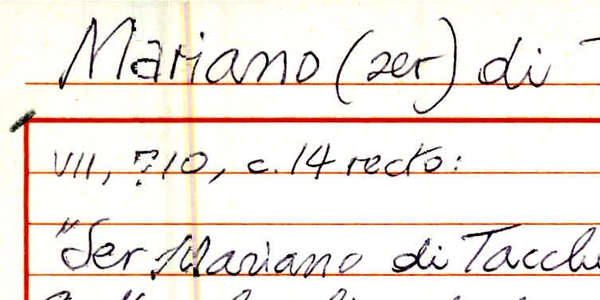 Mariano (ser) di
VII, 710, c. 14 recto:
"Ser Mariano di Tacch